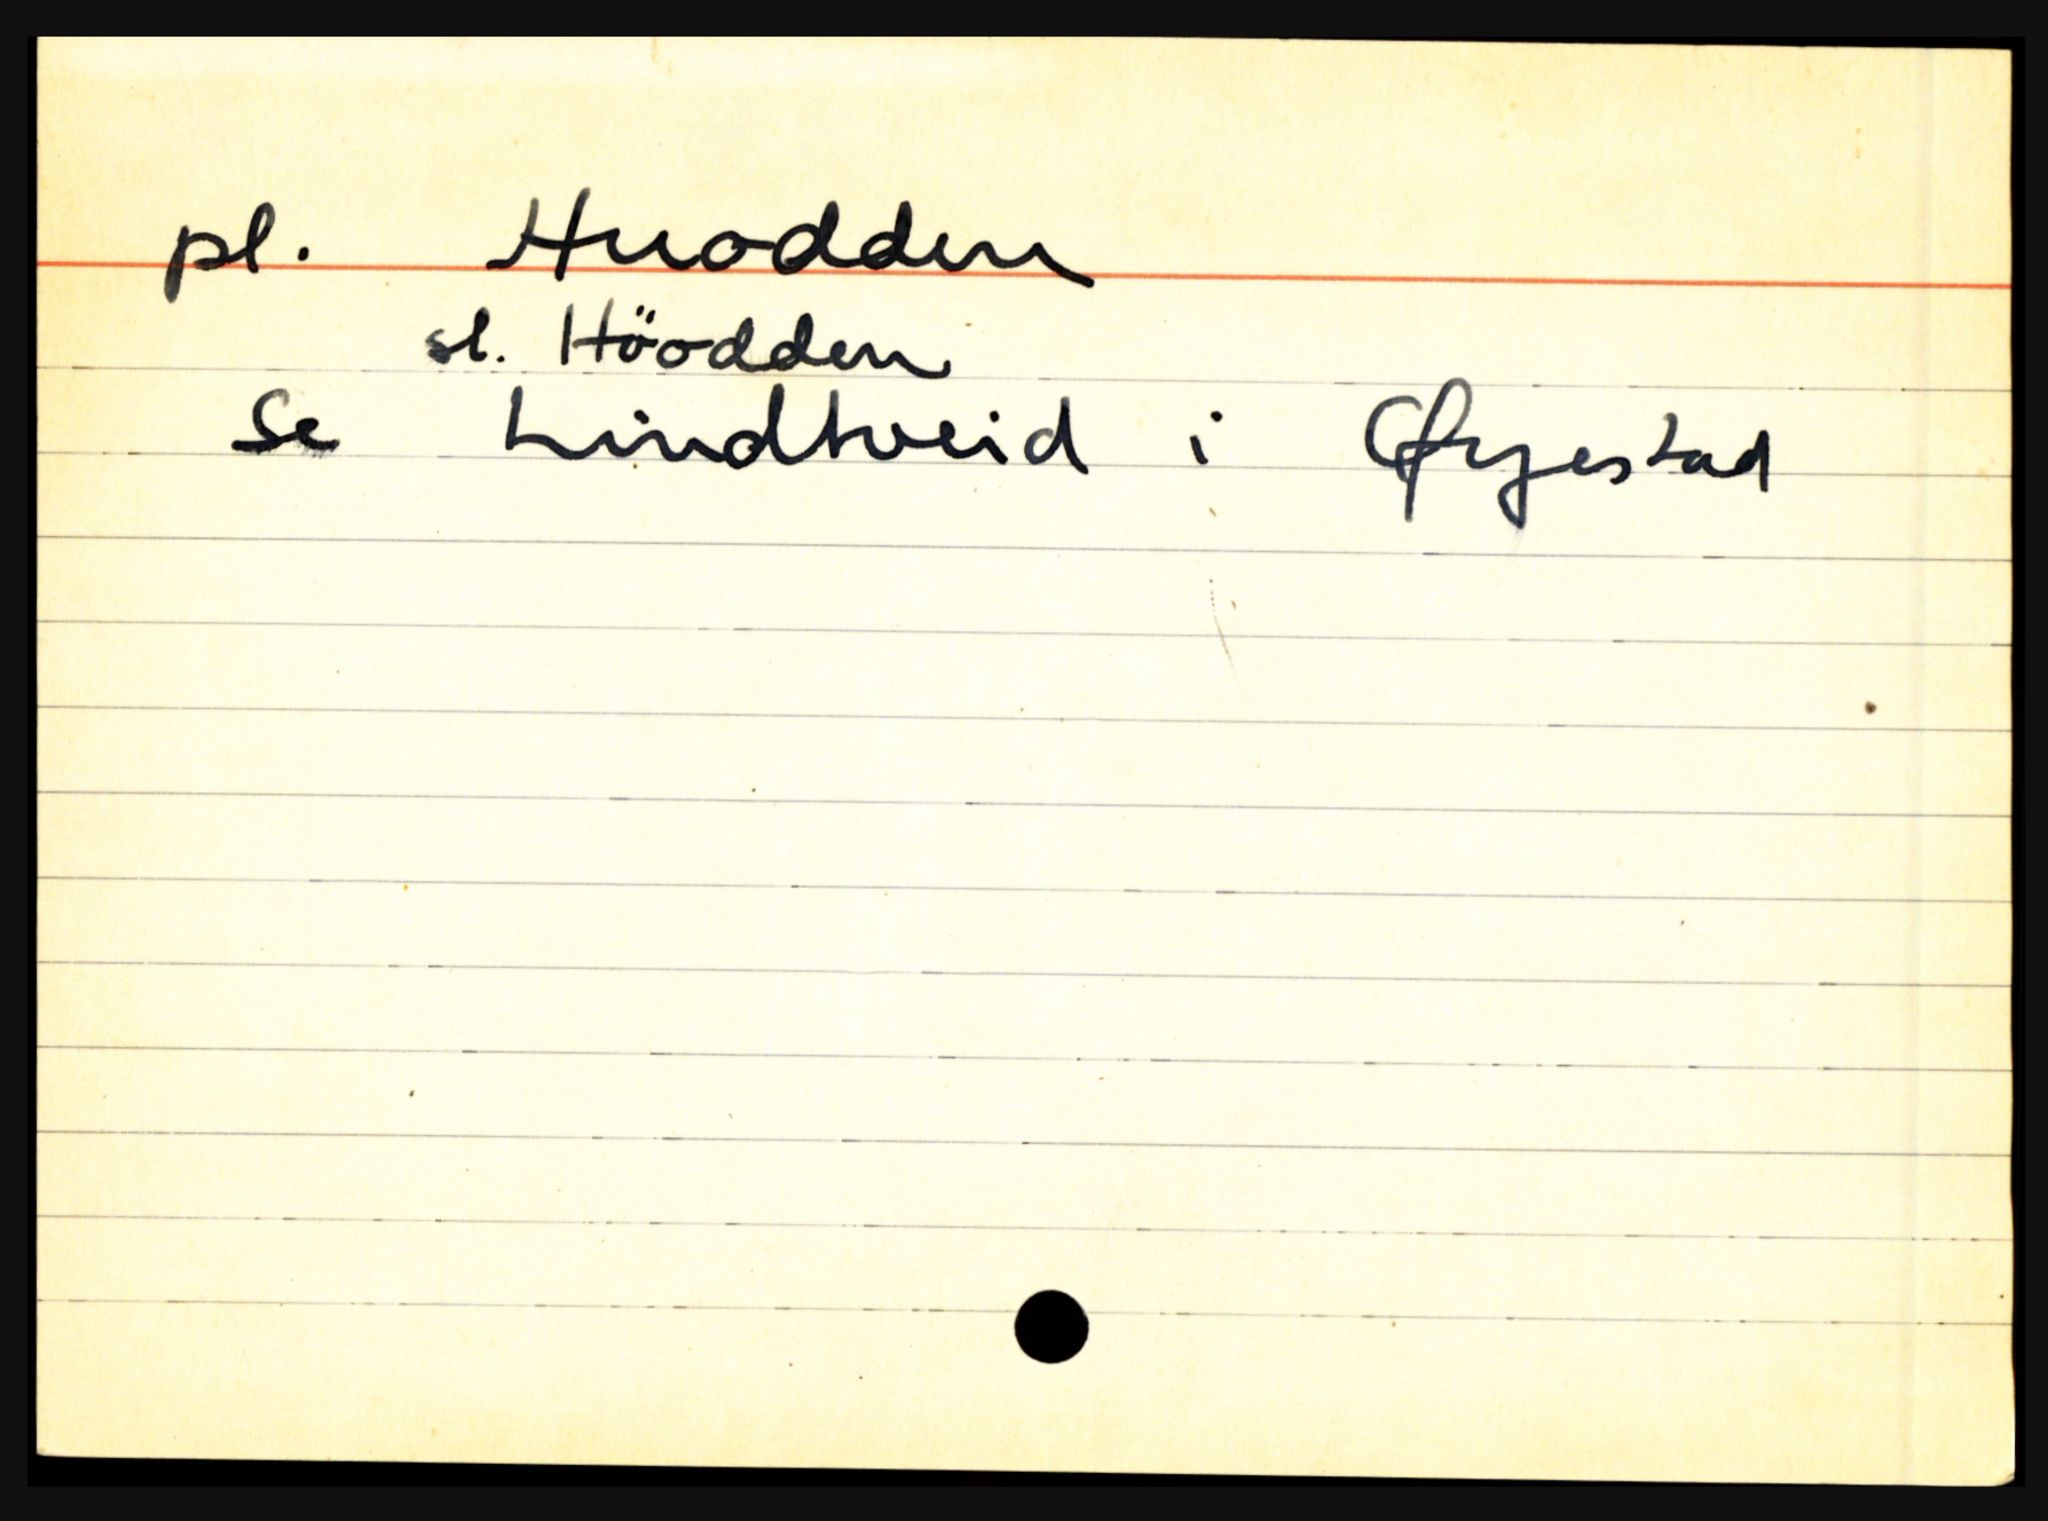 pl. Huodden
sl. Höodden
Se Lindtveid i Øyestad